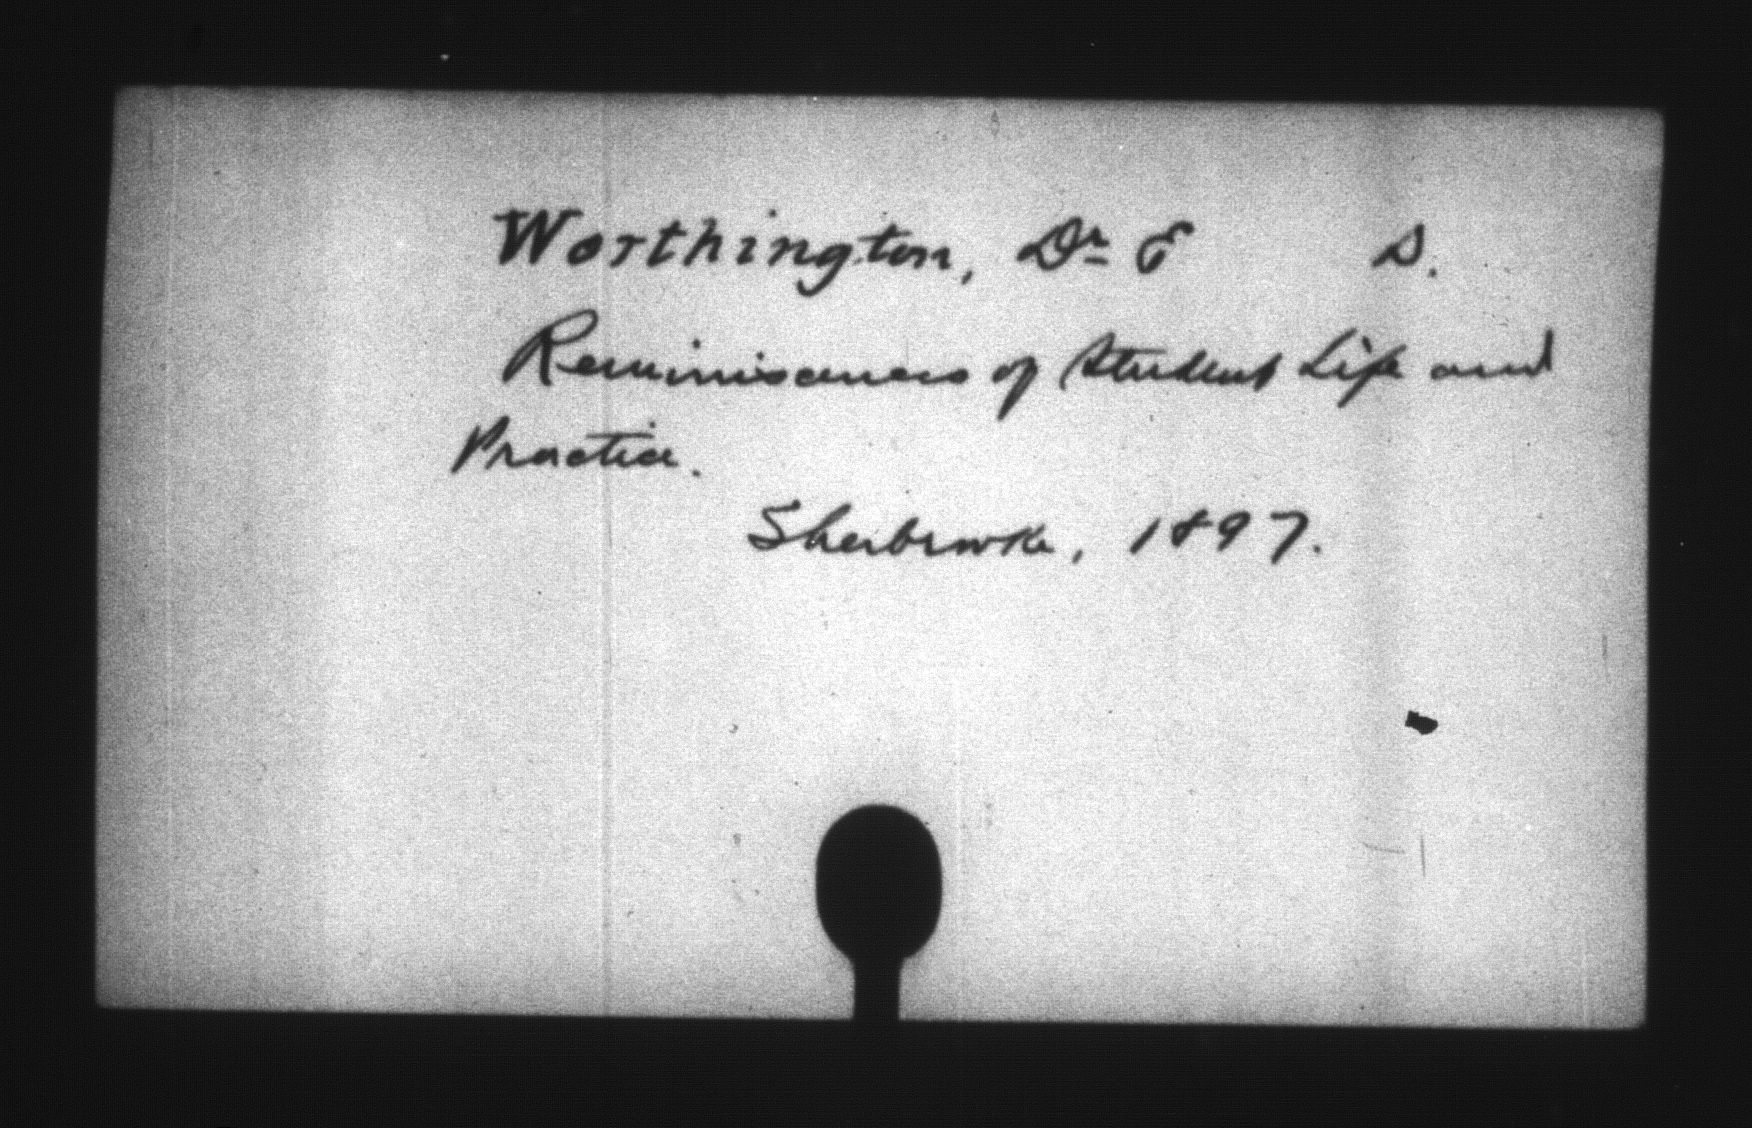 Worthington, Dr E D.
Reminiscences of Student Life and
Practice.
Sherbrooke, 1897.